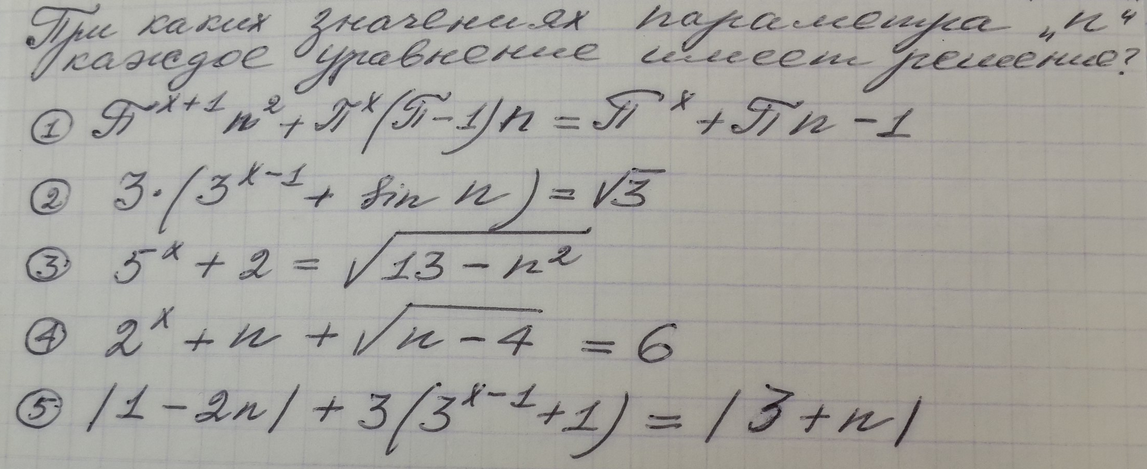 При каких значениях параметра „n“
каждое уравнение имеет решение?
① π^{x+1} n² + π^x (π-1) n = π^x + πn - 1
② 3·(3^{x-1} + sin n) = √3
③ 5^x + 2 = √(13 - n²)
④ 2^x + n + √(n - 4) = 6
⑤ |1 - 2n| + 3(3^{x-1} + 1) = |3 + n|